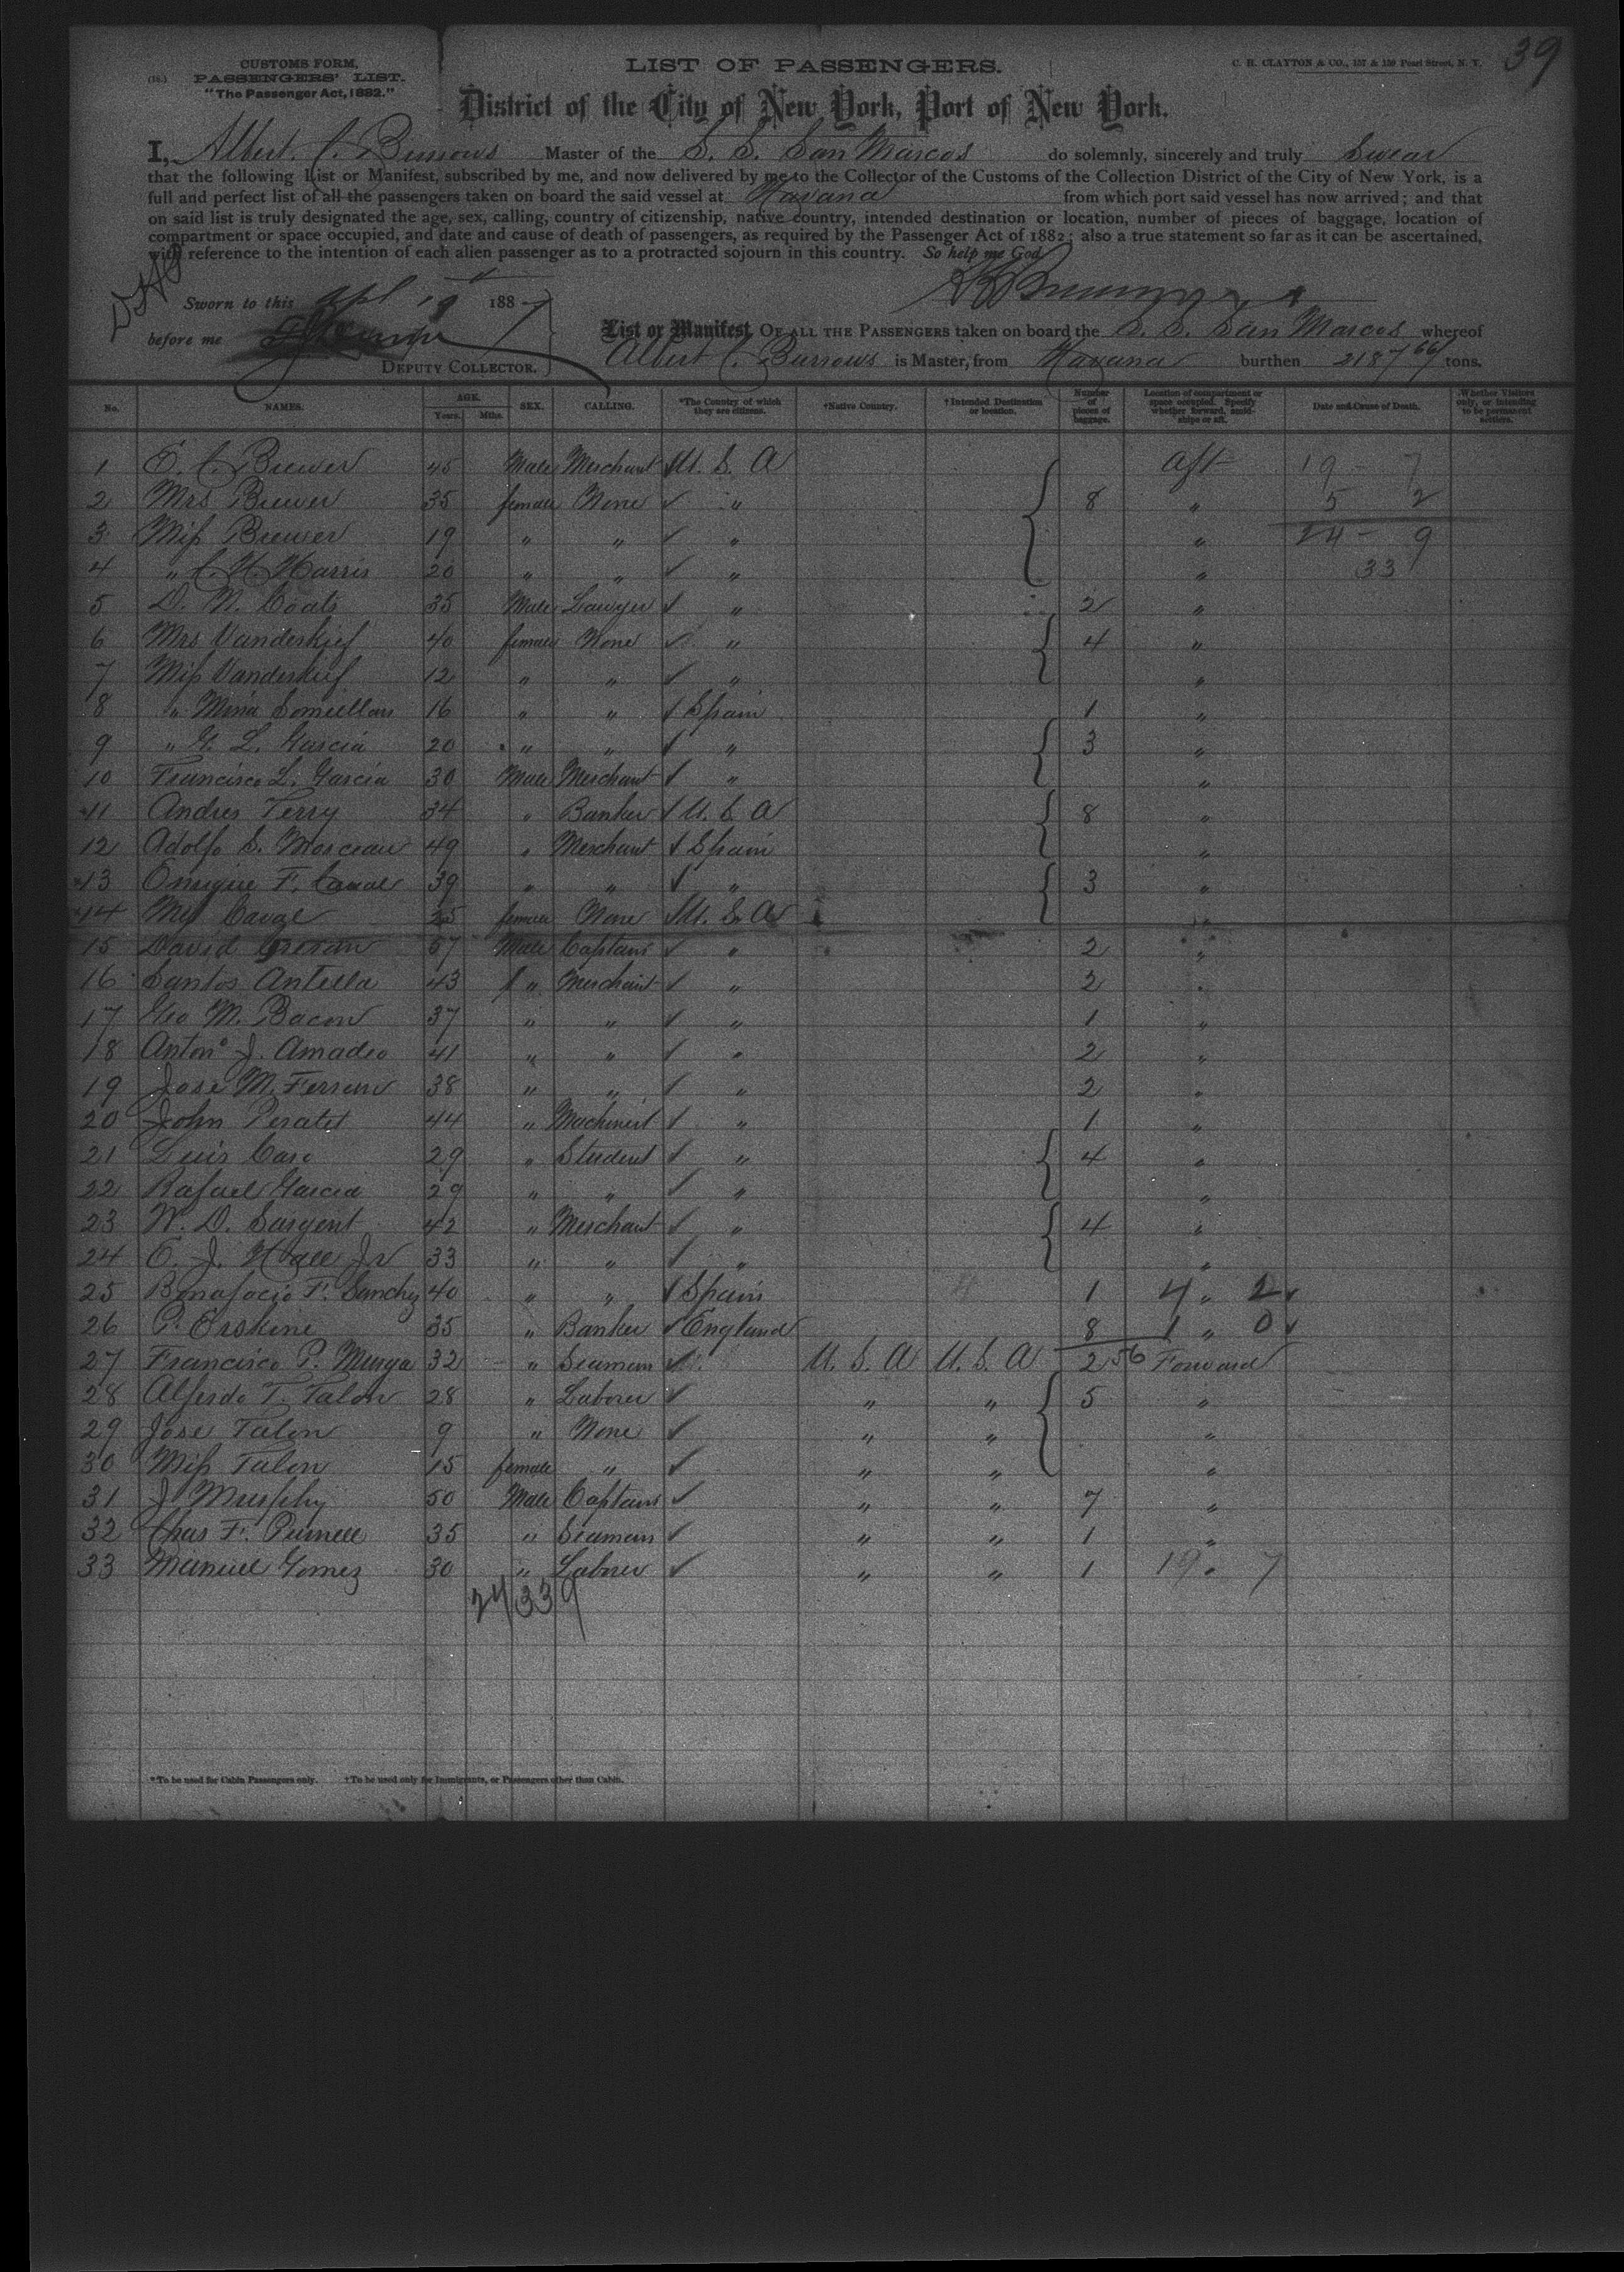 39
CUSTOMS FORM.
(18.) PASSENGERS' LIST.
"The Passenger Act, 1882."
LIST OF PASSENGERS.
C. H. CLAYTON & CO., 157 & 159 Pearl Street, N. Y.
District of the City of New York, Port of New York.
I, Albert C. Burrows Master of the S. S. San Marcos do solemnly, sincerely and truly Swear
that the following List or Manifest, subscribed by me, and now delivered by me to the Collector of the Customs of the Collection District of the City of New York, is a
full and perfect list of all the passengers taken on board the said vessel at Havana from which port said vessel has now arrived; and that
on said list is truly designated the age, sex, calling, country of citizenship, native country, intended destination or location, number of pieces of baggage, location of
compartment or space occupied, and date and cause of death of passengers, as required by the Passenger Act of 1882; also a true statement so far as it can be ascertained,
with reference to the intention of each alien passenger as to a protracted sojourn in this country. So help me God.
Sworn to this Apl 19 1887
before me
DEPUTY COLLECTOR.
List or Manifest OF ALL THE PASSENGERS taken on board the S. S. San Marcos whereof
Albert C. Burrows is Master, from Havana burthen 2187 66/ tons.
No. NAMES. AGE. Years. Mths. SEX. CALLING. *The Country of which they are citizens. †Native Country. †Intended Destination or location. Number of pieces of baggage. Location of compartment or space occupied. Specify whether forward, amidships or aft. Date and Cause of Death. Whether Visitors only, or intending to be permanent settlers.
1 E. C. Brewer 45 Male Merchant ✓ U. S. A aft 19 - 7
2 Mrs Brewer 35 female None ✓ " 8 " 5 2
3 Miss Brewer 19 " " ✓ " " 24 - 9
4 " C. H. Harris 20 " " ✓ " " 33
5 D. N. Coats 35 Male Lawyer ✓ " 2 "
6 Mrs Vanderkief 40 female None ✓ " 4 "
7 Miss Vanderkief 12 " " ✓ " "
8 " Maria 16 " " ✓ Spain 1 "
9 " G. L. Garcia 20 " " ✓ " 3 "
10 Francisco L. Garcia 30 Male Merchant ✓ " "
11 Andres Terry 34 " Banker ✓ U. S. A 8 "
12 Adolfo S. 49 " Merchant ✓ Spain "
13 Enrique F. 39 " " ✓ " 3 "
14 25 female None ✓ U. S. A "
15 David 57 Male Captain ✓ " 2 "
16 Santos Antella 43 " Merchant ✓ " 2 "
17 Geo M. Bacon 37 " " ✓ " 1 "
18 Antonº J. Amadeo 41 " " ✓ " 2 "
19 Jose M. Ferrem 38 " " ✓ " 2 "
20 John 44 " Machinist ✓ " 1 "
21 Luis Caso 29 " Student ✓ " 4 "
22 Rafael Garcia 29 " " ✓ " "
23 W. D. Sargent 42 " Merchant ✓ " 4 "
24 E. J. Hall Jr 33 " " ✓ " "
25 Bonafocio F. Sanchez 40 " " ✓ Spain 1 4 " 2 ✓
26 P. Erskine 35 " Banker ✓ England 8 1 " 0 ✓
27 Francisco P. Murga 32 " Seaman ✓ U. S. A U. S. A 2 56 Forward
28 Alfredo T. Talon 28 " Laborer ✓ " " 5 "
29 Jose Talon 9 " None ✓ " " "
30 Miss Talon 15 female " ✓ " " "
31 J. Murphy 50 Male Captain ✓ " " 7 "
32 Chas F. Purnell 35 " Seaman ✓ " " 1 "
33 Manuel Gomez 30 " Laborer ✓ " " 1 19 " 7
24/33 9
*To be used for Cabin Passengers only. †To be used only for Immigrants, or Passengers other than Cabin.